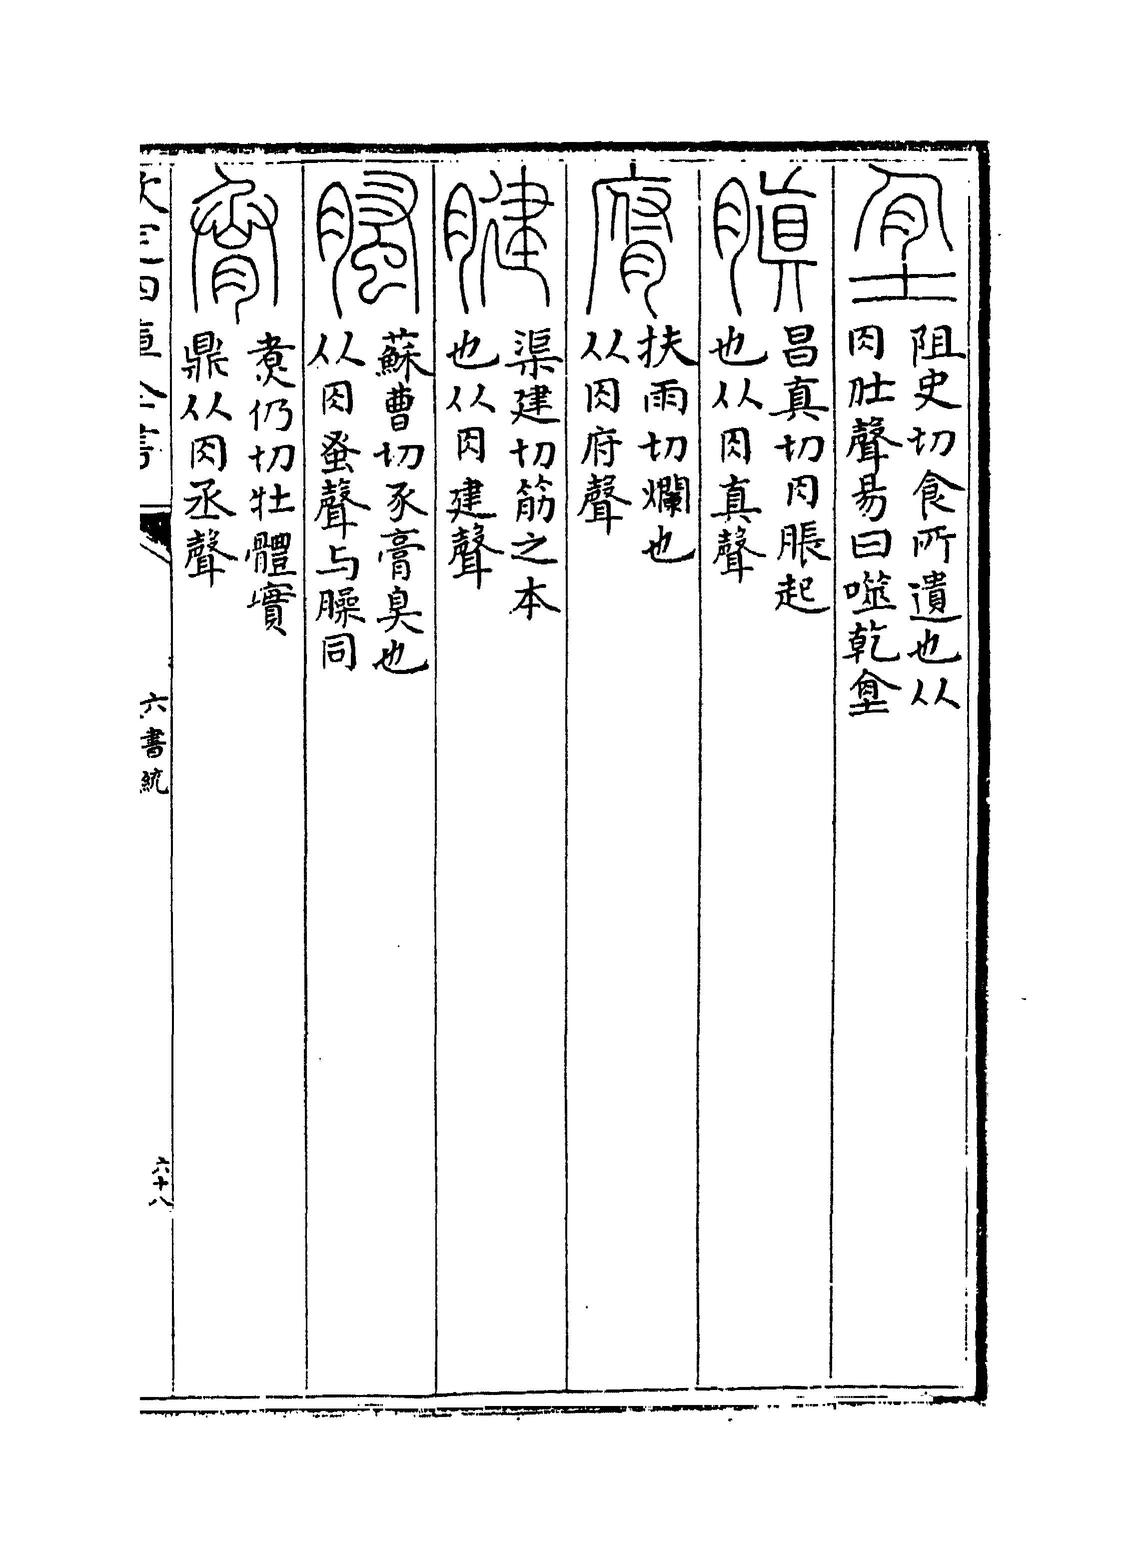 阻史切食所遺也从
肉肚聲易曰噬乾
䐜
昌真切肉脹起
也从肉真聲
腐
扶雨切爛也
从肉府聲
腱
渠建切筋之本
也从肉建聲
蘇曹切豕膏臭也
从肉蚤聲与臊同
脀
煑仍切牡體實
鼎从肉丞聲
欽定四庫全書
六書統
六十八